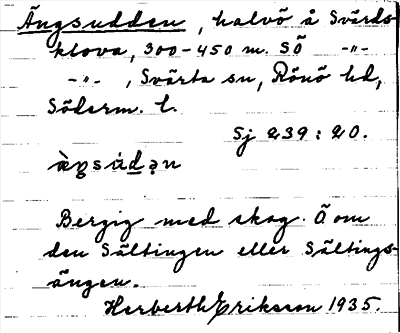 Ängsudden, halvö å Svärds-
klova, 300-450 m. SÖ -"-
-"-, Svärta sn, Rönö hd,
Söderm. l.
Sj 239:20.
ä̀ŋsúdən
Bergig med skog. Ö om
den Sältingen eller Sältings-
ängen.
Herberth Eriksson 1935.